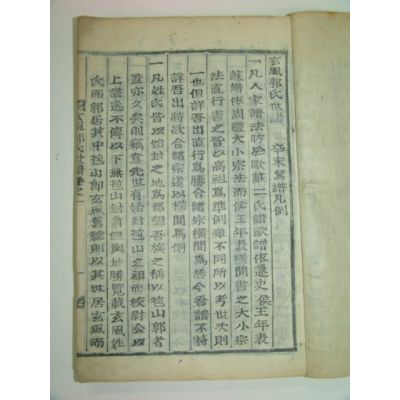 玄風郭氏世譜
辛未舊譜凡例
一凡人家譜法昉於歐蘇二氏譜歐譜依遷史侯王年表
蘇譜依周禮大小宗法而侯王年表橫間書之大小宗
法直行書之皆以高祖爲準例雖不同所以考世次則
一也但詳吾出直行爲勝合諸宗橫間爲勝今吾譜不特
詳吾出將以合諸宗謹以橫間爲例
一凡姓氏皆以始封之地爲郡望吾族之稱以苞山郭者
蓋亦久矣刱稱者先世有始封苞山之祖而校尉公以
上譜逸不傳以下無苞山封爵但輿地勝覽載玄風姓
氏而郭居其中苞山卽玄風舊號則以其世居玄風而
玄風郭氏世譜卷之一